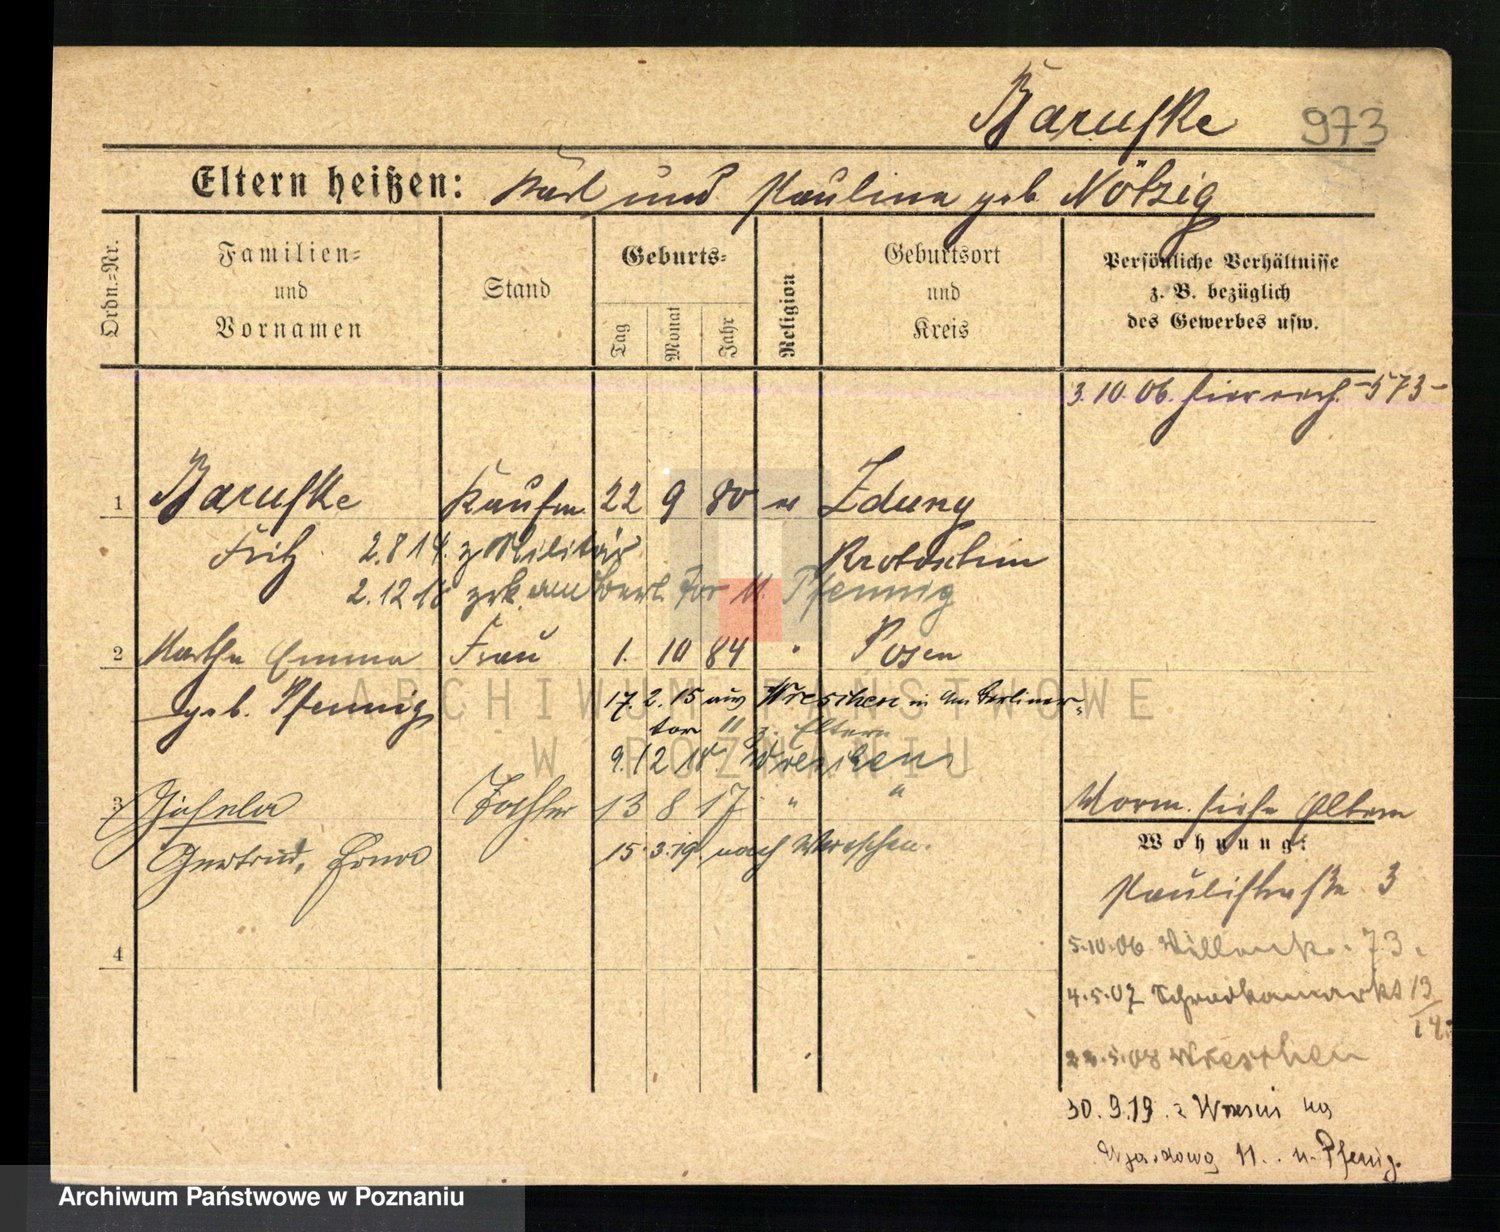 Baruske 973
Eltern heißen: Karl und Paulina geb Nötzig
Ordn.-Nr.
Familien-
und
Vornamen
Stand
Geburts-
Tag
Monat
Jahr
Religion
Geburtsort
und
Kreis
Persönliche Verhältnisse
z. B. bezüglich
des Gewerbes usw.
3.10.06. -573-
1 Baruske Kaufm. 22 9 80 Zduny
Fritz 2.8 14. z Militär Krotoschin
2.12 18 zrk am Berl Tor 11. Pfennig
2 Martha Emma Frau 1. 10 84 " Posen
geb. Pfennig 17. 2. 15 aus Wreschen in Am Berliner-
tor 11 z. Eltern
9. 12 18. Wreschen
3 Gisela Tochter 13 8 17 " "
Gertrud, Erna 15.3.19. nach Wreschen.
4
Vorm. siehe Eltern
Wohnung:
Paulistraße 3
5.10.06 73.
4.5.07 13/14.
5.08 Wreschen
30.9.19. z Wrześni na
Wjazdową 11. u. Pfenig.
ARCHIWUM PAŃSTWOWE
W POZNANIU
Archiwum Państwowe w Poznaniu